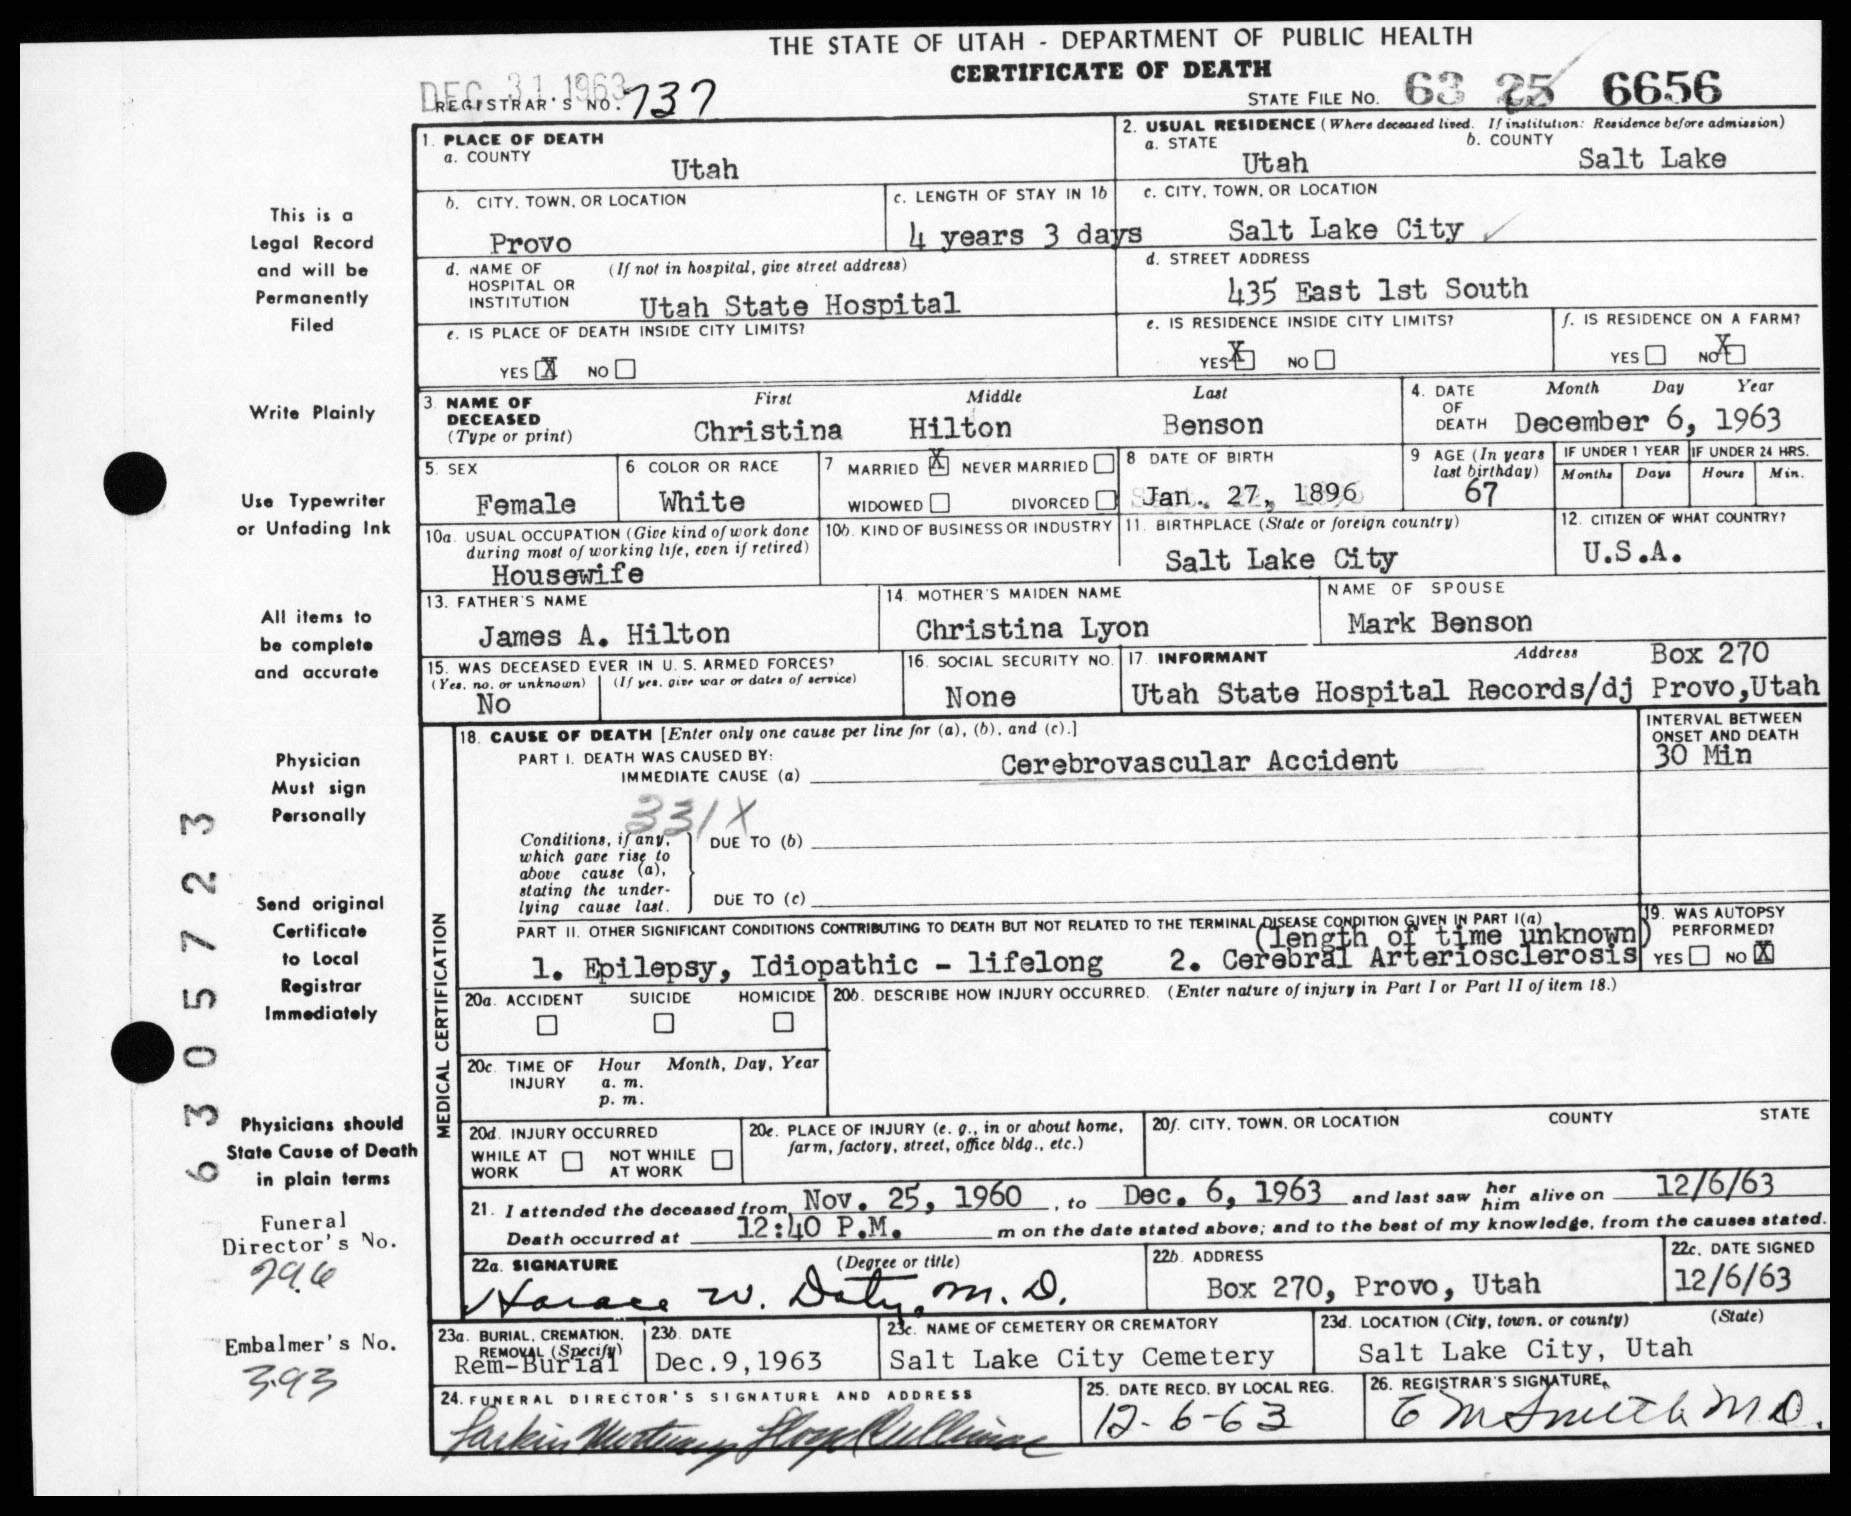 THE STATE OF UTAH - DEPARTMENT OF PUBLIC HEALTH
CERTIFICATE OF DEATH
DEC 31 1963
REGISTRAR'S NO. 737
STATE FILE NO. 63 25 6656
1. PLACE OF DEATH
a. COUNTY
Utah
2. USUAL RESIDENCE (Where deceased lived. If institution: Residence before admission)
a. STATE
Utah
b. COUNTY
Salt Lake
b. CITY, TOWN, OR LOCATION
Provo
c. LENGTH OF STAY IN 1b
4 years 3 days
c. CITY, TOWN, OR LOCATION
Salt Lake City
d. NAME OF HOSPITAL OR INSTITUTION
(If not in hospital, give street address)
Utah State Hospital
d. STREET ADDRESS
435 East 1st South
e. IS PLACE OF DEATH INSIDE CITY LIMITS?
YES X NO
e. IS RESIDENCE INSIDE CITY LIMITS?
YES X NO
f. IS RESIDENCE ON A FARM?
YES NO X
3. NAME OF DECEASED
(Type or print)
First Middle Last
Christina Hilton Benson
4. DATE OF DEATH
Month Day Year
December 6, 1963
5. SEX
Female
6 COLOR OR RACE
White
7 MARRIED X NEVER MARRIED
WIDOWED DIVORCED
8 DATE OF BIRTH
Jan. 27, 1896
9 AGE (In years last birthday)
67
IF UNDER 1 YEAR
Months Days
IF UNDER 24 HRS.
Hours Min.
10a. USUAL OCCUPATION (Give kind of work done during most of working life, even if retired)
Housewife
10b. KIND OF BUSINESS OR INDUSTRY
11. BIRTHPLACE (State or foreign country)
Salt Lake City
12. CITIZEN OF WHAT COUNTRY?
U.S.A.
13. FATHER'S NAME
James A. Hilton
14. MOTHER'S MAIDEN NAME
Christina Lyon
NAME OF SPOUSE
Mark Benson
15. WAS DECEASED EVER IN U. S. ARMED FORCES?
(Yes, no, or unknown) (If yes, give war or dates of service)
No
16. SOCIAL SECURITY NO.
None
17. INFORMANT
Address
Box 270
Utah State Hospital Records/dj Provo,Utah
MEDICAL CERTIFICATION
18. CAUSE OF DEATH [Enter only one cause per line for (a), (b), and (c).]
PART I. DEATH WAS CAUSED BY:
IMMEDIATE CAUSE (a) Cerebrovascular Accident
INTERVAL BETWEEN ONSET AND DEATH
30 Min
331X
Conditions, if any, which gave rise to above cause (a), stating the underlying cause last.
DUE TO (b)
DUE TO (c)
PART II. OTHER SIGNIFICANT CONDITIONS CONTRIBUTING TO DEATH BUT NOT RELATED TO THE TERMINAL DISEASE CONDITION GIVEN IN PART I(a)
(length of time unknown)
1. Epilepsy, Idiopathic - lifelong 2. Cerebral Arteriosclerosis
19. WAS AUTOPSY PERFORMED?
YES NO X
20a. ACCIDENT SUICIDE HOMICIDE
20b. DESCRIBE HOW INJURY OCCURRED. (Enter nature of injury in Part I or Part II of item 18.)
20c. TIME OF INJURY
Hour Month, Day, Year
a. m.
p. m.
20d. INJURY OCCURRED
WHILE AT WORK NOT WHILE AT WORK
20e. PLACE OF INJURY (e. g., in or about home, farm, factory, street, office bldg., etc.)
20f. CITY, TOWN, OR LOCATION COUNTY STATE
21. I attended the deceased from Nov. 25, 1960, to Dec. 6, 1963 and last saw her him alive on 12/6/63
Death occurred at 12:40 P.M. m on the date stated above; and to the best of my knowledge, from the causes stated.
22a. SIGNATURE (Degree or title)
Horace W. Doty, M. D.
22b. ADDRESS
Box 270, Provo, Utah
22c. DATE SIGNED
12/6/63
23a. BURIAL, CREMATION, REMOVAL (Specify)
Rem-Burial
23b. DATE
Dec.9,1963
23c. NAME OF CEMETERY OR CREMATORY
Salt Lake City Cemetery
23d. LOCATION (City, town, or county) (State)
Salt Lake City, Utah
24. FUNERAL DIRECTOR'S SIGNATURE AND ADDRESS
Larkin Mortuary
25. DATE RECD. BY LOCAL REG.
12-6-63
26. REGISTRAR'S SIGNATURE
This is a
Legal Record
and will be
Permanently
Filed
Write Plainly
Use Typewriter
or Unfading Ink
All items to
be complete
and accurate
Physician
Must sign
Personally
Send original
Certificate
to Local
Registrar
Immediately
Physicians should
State Cause of Death
in plain terms
Funeral
Director's No.
296
Embalmer's No.
393
6305723